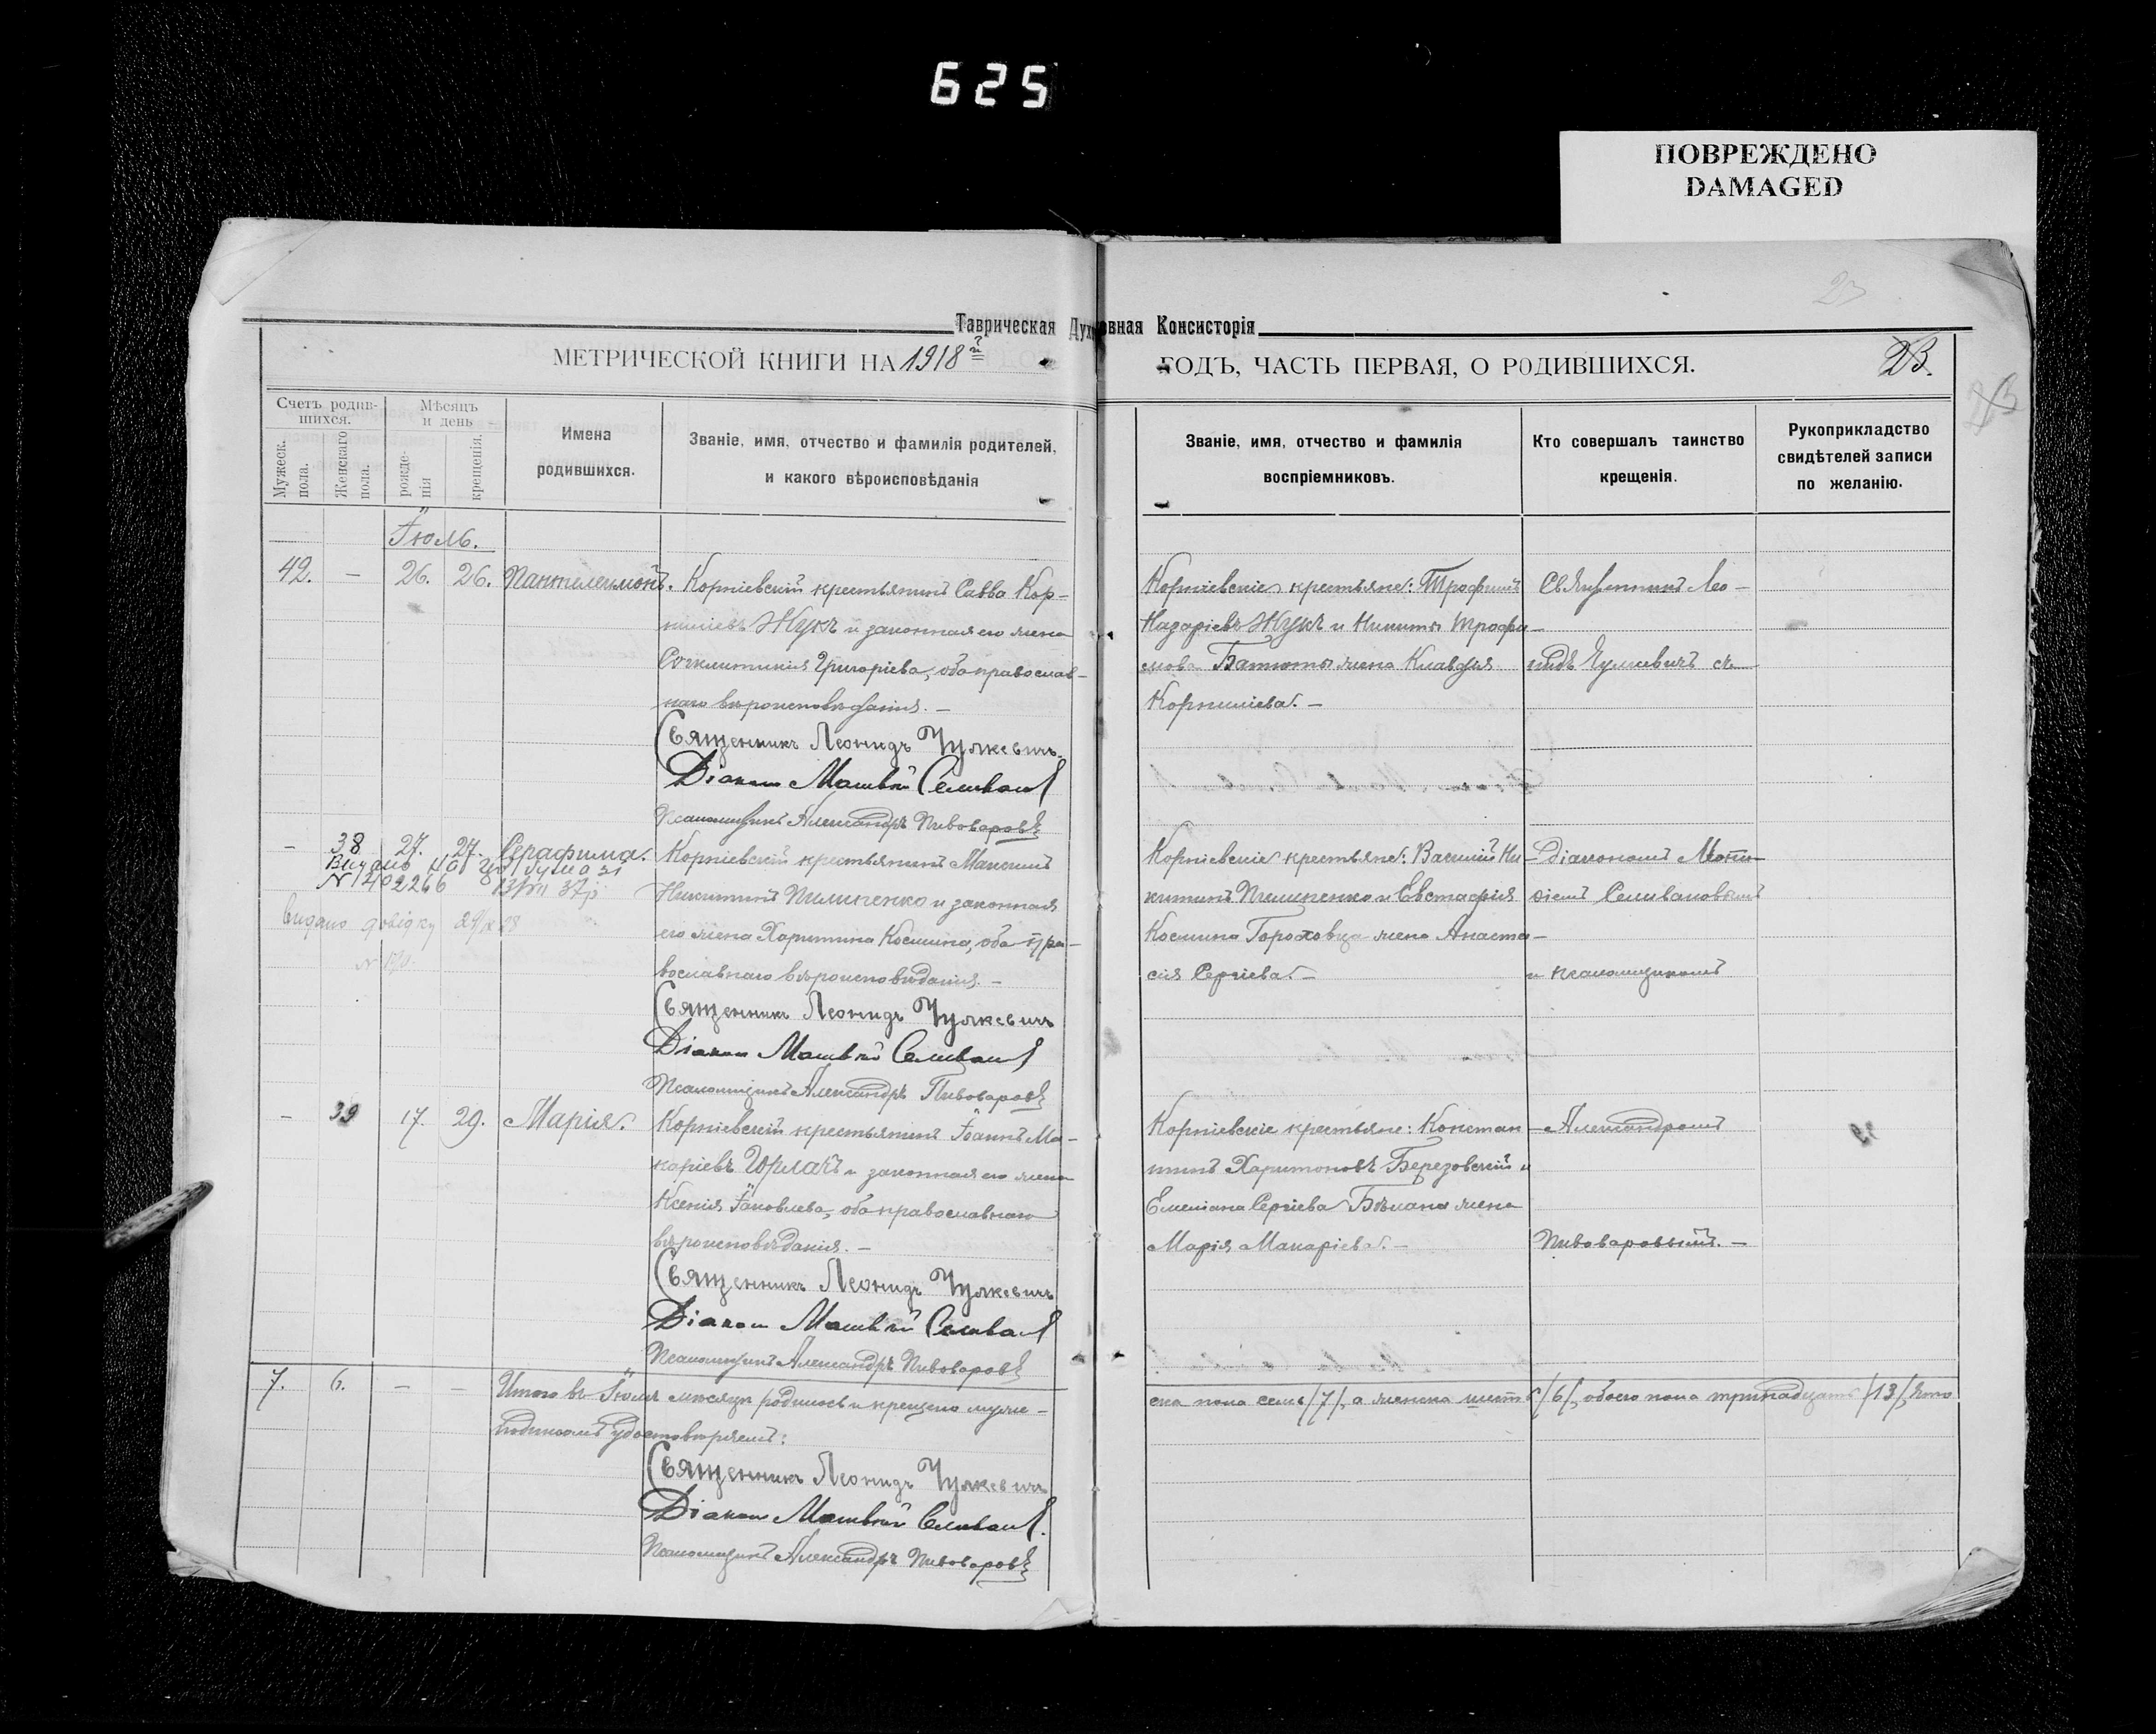 625
ПОВРЕЖДЕНО
DAMAGED
Таврическая Духовная Консисторія
МЕТРИЧЕСКОЙ КНИГИ НА 1918й
ГОДЪ, ЧАСТЬ ПЕРВАЯ, О РОДИВШИХСЯ.
23.
Счетъ родив-
шихся.
Мужеск. пола.
Женскаго пола.
Мѣсяцъ
и день
рожде-
нія
крещенія.
Имена
родившихся.
Званіе, имя, отчество и фамилія родителей,
и какого вѣроисповѣданія
Званіе, имя, отчество и фамилія
воспріемниковъ.
Кто совершалъ таинство
крещенія.
Рукоприкладство
свидѣтелей записи
по желанію.
Іюль.
42. – 26. 26. Пантелеимонъ.
Корніевскій крестьянинъ Савва Кор-
ниліевъ Жукъ и законная его жена
Григоріева, оба православ-
наго вѣроисповѣданія. –
Священникъ Леонидъ Чулкевичъ.
Діаконъ Матвѣй Селивановъ
Псаломщикъ Александръ Пивоваровъ
Корніевскіе крестьяне: Трофимъ
Назаріевъ Жукъ и Никиты Трофи-
мова Батюты жена Клавдія
Корниліева. –
Священникъ Лео-
нидъ Чулкевичъ съ
– 38 27. 27. Серафима.
N 1402266
Видано довідку
Корніевскій крестьянинъ Максимъ
Никитинъ Пилипенко и законная
его жена Харитина Космина, оба пра-
вославнаго вѣроисповѣданія. –
Священникъ Леонидъ Чулкевичъ
Діаконъ Матвѣй Селивановъ
Псаломщикъ Александръ Пивоваровъ
Корніевскіе крестьяне: Василій Ни-
китинъ Пилипенко и Евстафія
Космина Гороховца жена Анаста-
сія Сергіева. –
Діакономъ Матѳ-
ѳіемъ Селивановымъ
и псаломщикомъ
– 39 17. 29. Марія.
Корніевскій крестьянинъ Іоаннъ Ма-
каріевъ Горлачъ и законная его жена
Ксенія Іаковлева, оба православнаго
вѣроисповѣданія. –
Священникъ Леонидъ Чулкевичъ
Діаконъ Матвѣй Селивановъ
Псаломщикъ Александръ Пивоваровъ
Корніевскіе крестьяне: Констан-
тинъ Харитоновъ Березовскій и
Емеліана Сергіева Бѣлана жена
Марія Макаріева. –
Александромъ
Пивоваровымъ. –
7. 6. – – Итого въ Іюлѣ мѣсяцѣ родилось и крещено муже-
ска пола семь /7/, а женска шесть /6/, обоего пола тринадцать /13/, что
подписомъ удостовѣряемъ:
Священникъ Леонидъ Чулкевичъ
Діаконъ Матвѣй Селивановъ.
Псаломщикъ Александръ Пивоваровъ